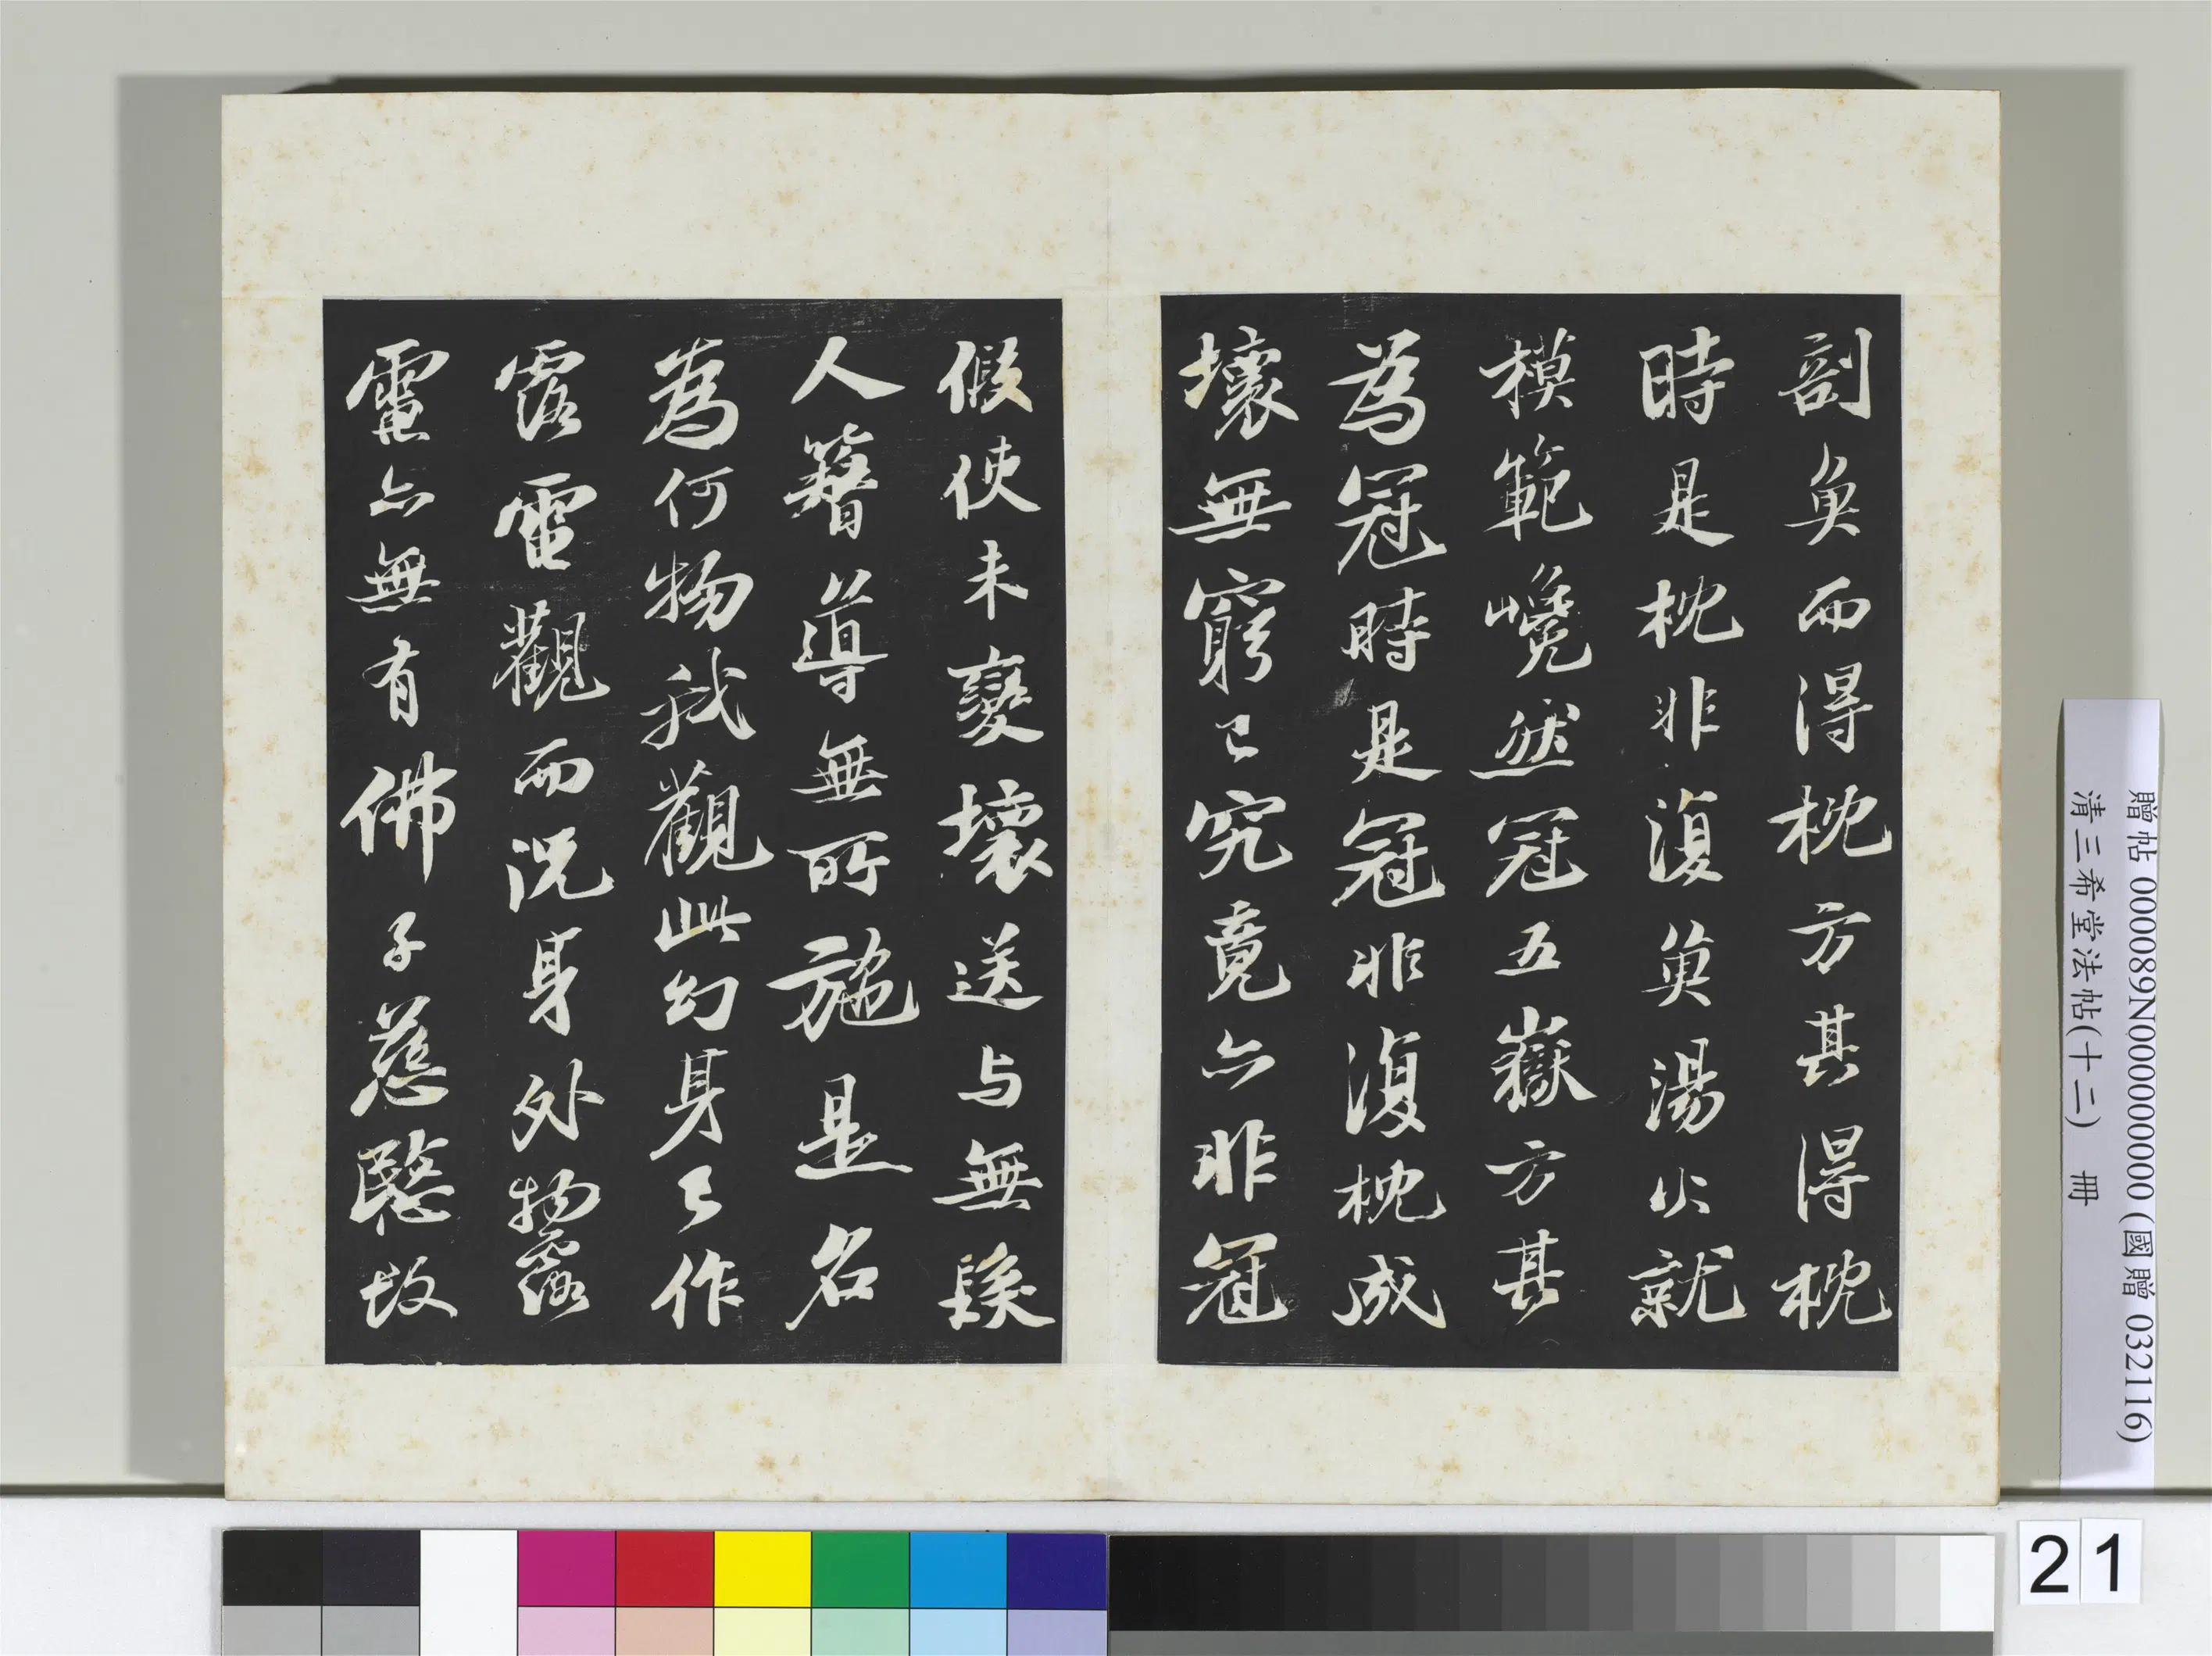 剖魚而得枕方其得枕
時是枕非復魚湯火就
模範巉然冠五嶽方其
為冠時是冠非復枕成
壞無窮已究竟亦非冠
假使未變壞送与無髮
人簪導無所施是名
為何物我觀此幻身已作
露電觀而况身外物露
電亦無有佛子慈閔故
贈帖 000089N000000000 (國贈 032116)
清三希堂法帖(十二) 冊
21